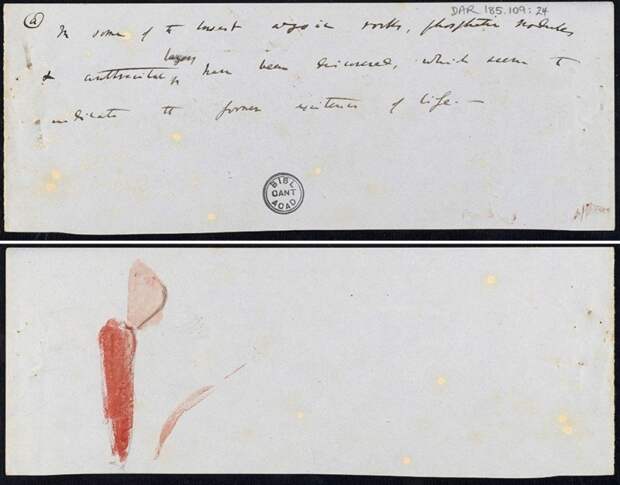 DAR 185.109:24
(a) In some of the lowest azoic rocks, phosphatic nodules
layers
& anthracitic have been discovered, which seem to
indicate the former existence of life.—
BIBL
CANT
ACAD